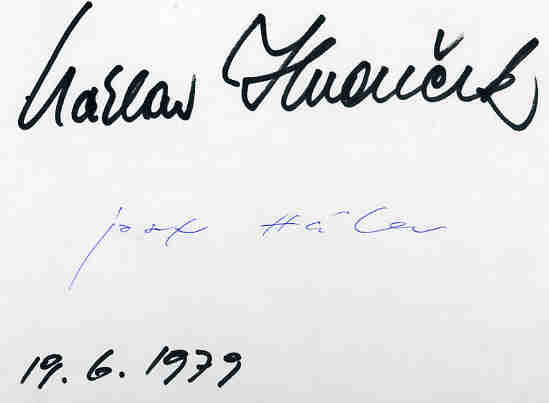 Václav Hudeček
Josef Hála
19. 6. 1979